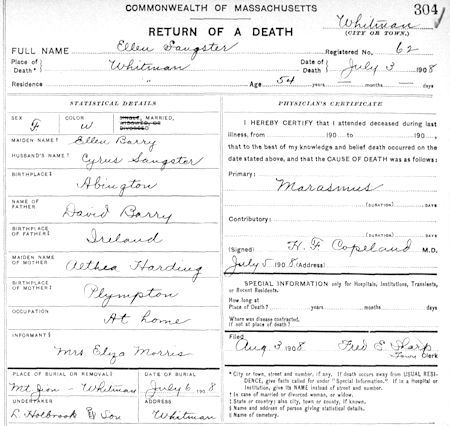 COMMONWEALTH OF MASSACHUSETTS
304
RETURN OF A DEATH
Whitman
(CITY OR TOWN.)
FULL NAME Ellen Sangster Registered No. 62
Place of Death* Whitman Date of Death July 3 1908
Residence " Age 54 years months days
STATISTICAL DETAILS
SEX F COLOR W SINGLE, MARRIED, WIDOWED, OR DIVORCED
MAIDEN NAME† Ellen Barry
HUSBAND'S NAME† Cyrus Sangster
BIRTHPLACE‡ Abington
NAME OF FATHER David Barry
BIRTHPLACE OF FATHER‡ Ireland
MAIDEN NAME OF MOTHER Althea Harding
BIRTHPLACE OF MOTHER‡ Plympton
OCCUPATION At home
INFORMANT§ Mrs Eliza Morris
PLACE OF BURIAL OR REMOVAL‖ Mt Zion - Whitman DATE OF BURIAL July 6 1908
UNDERTAKER L. Holbrook & Son ADDRESS Whitman
PHYSICIAN'S CERTIFICATE
I HEREBY CERTIFY that I attended deceased during last
illness, from 190 to 190 ,
that to the best of my knowledge and belief death occurred on the
date stated above, and that the CAUSE OF DEATH was as follows:
Primary:
Marasmus
(DURATION) DAYS
Contributory:
(DURATION) DAYS
(Signed) H. F. Copeland M.D.
July 5 1908 (Address)
SPECIAL INFORMATION only for Hospitals, Institutions, Transients, or Recent Residents.
How long at
Place of Death? years months days
Where was disease contracted,
if not at place of death?
Filed
Aug. 3 1908 Fred E Sharp
Town Clerk
* City or town, street and number, if any. If death occurs away from USUAL RESIDENCE, give facts called for under "Special Information." If in a Hospital or Institution, give its NAME instead of street and number.
† In case of married or divorced woman, or widow.
‡ State or country; also city, town or county, if known.
§ Name and address of person giving statistical details.
‖ Name of cemetery.